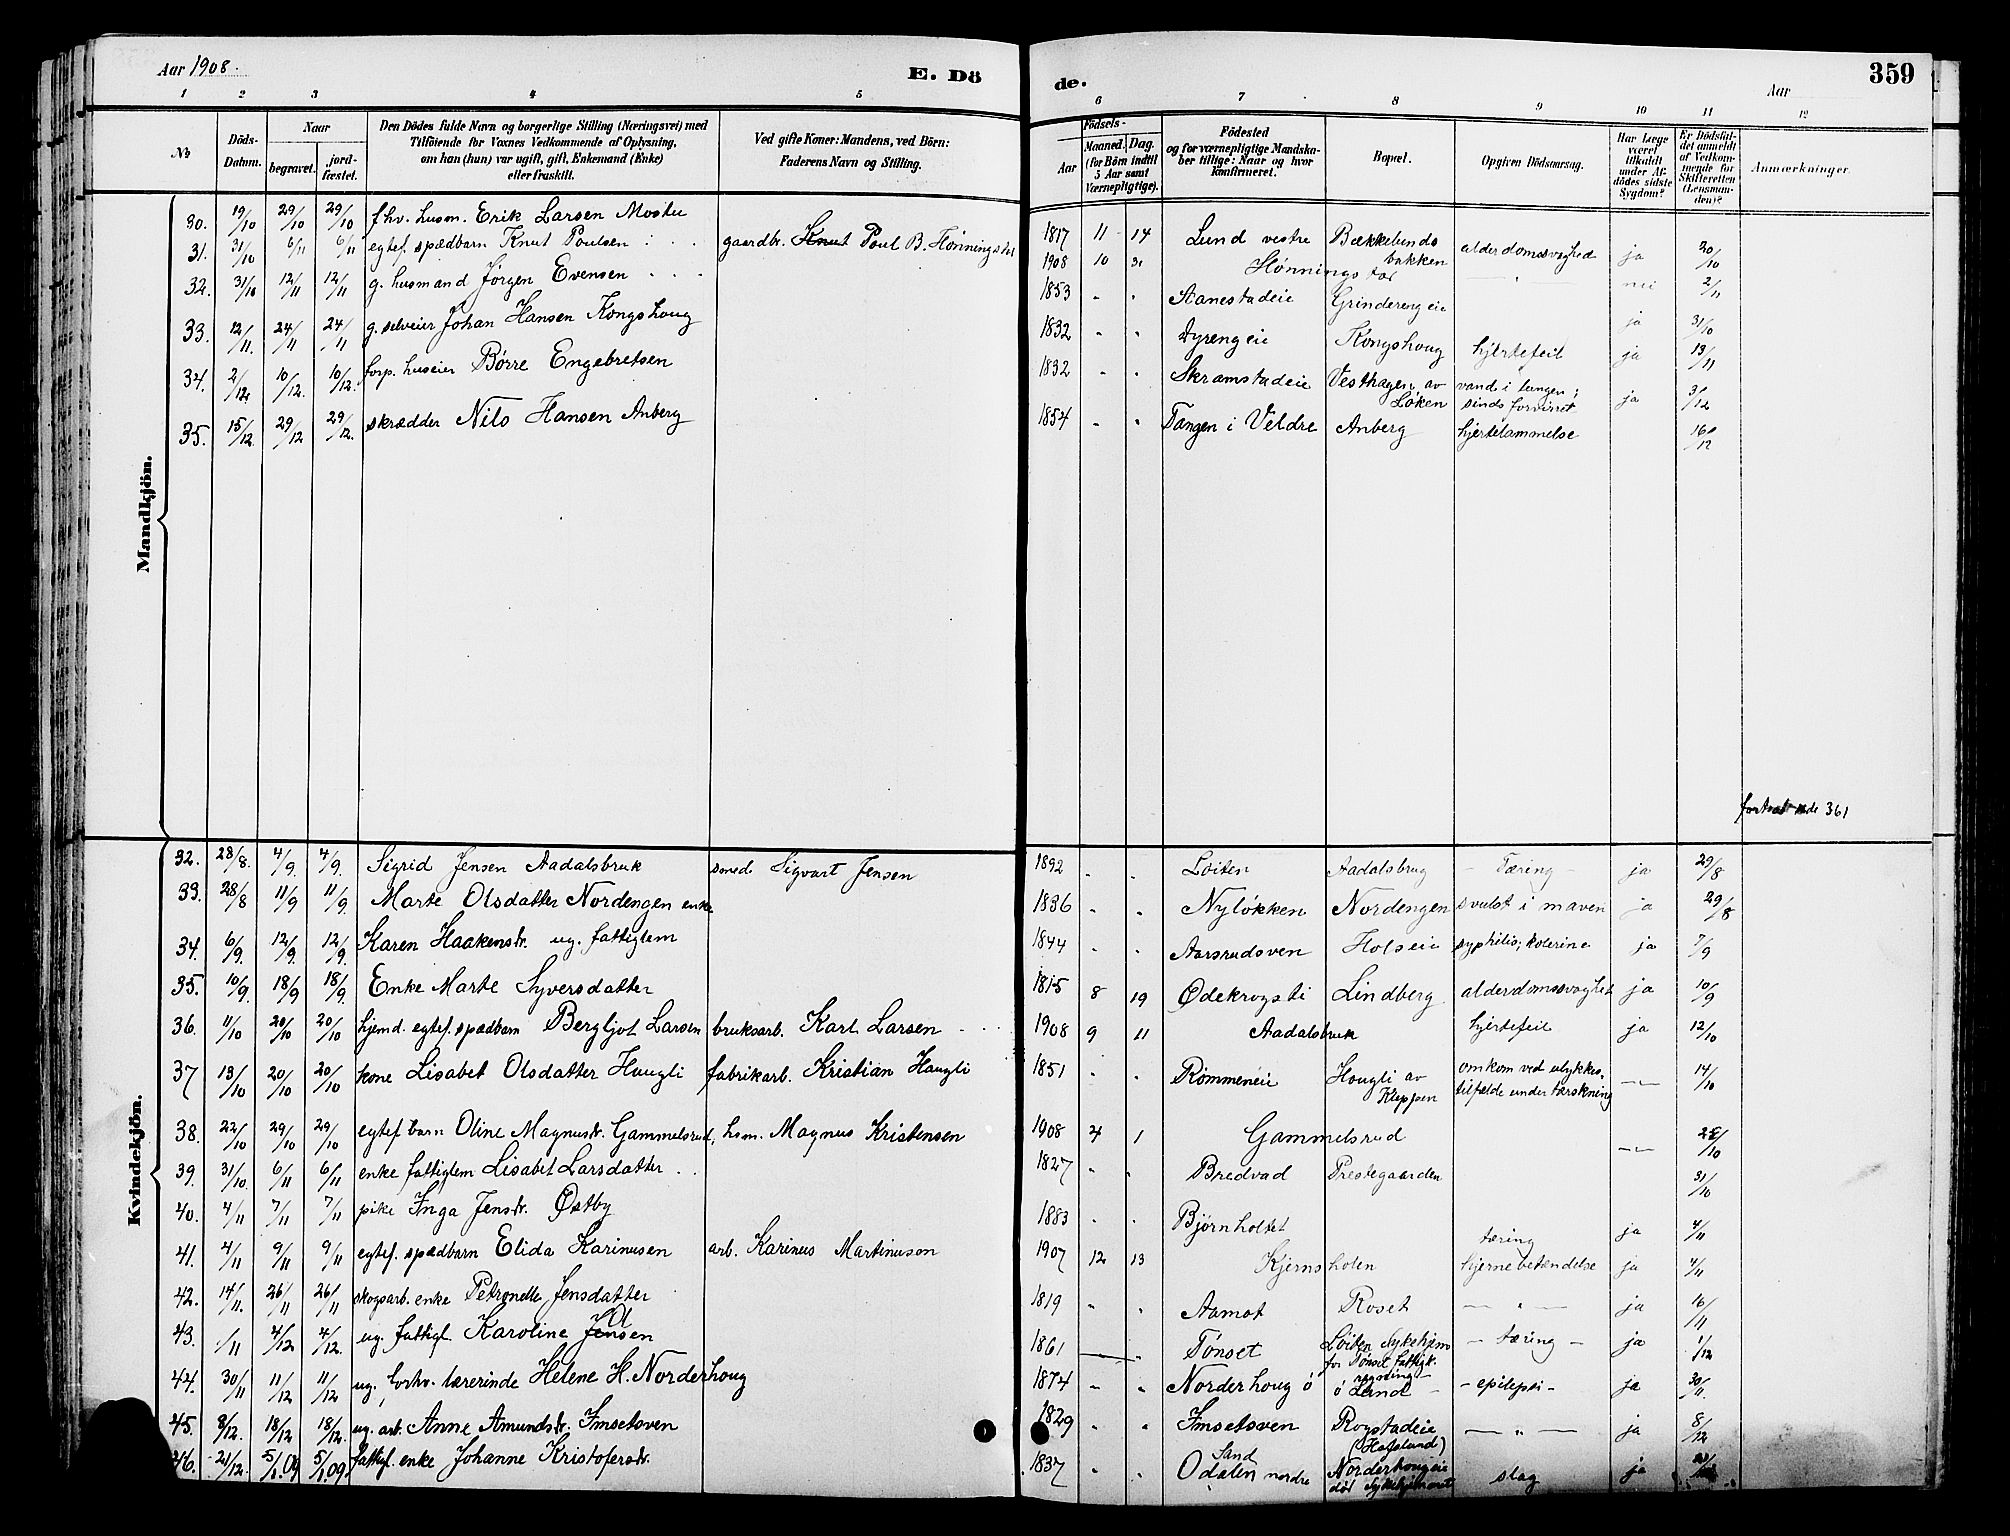 Aar 1908.
E. Döde.
Aar
359
1 2 3 4 5 6 7 8 9 10 11 12
No
Döds-Datum.
Naar
begravet.
jordfæstet.
Den Dödes fulde Navn og borgerlige Stilling (Næringsvei) med Tilföiende for Voxnes Vedkommende af Oplysning, om han (hun) var ugift, gift, Enkemand (Enke) eller fraskilt.
Ved gifte Koner: Mandens, ved Börn: Faderens Navn og Stilling.
Födsels-
Aar
Maaned. Dag.
(for Börn indtil 5 Aar samt Værnepligtige).
Födested og for værnepligtige Mandskaber tillige: Naar og hvor konfirmeret.
Bopæl.
Opgiven Dödsaarsag.
Har Læge været tilkaldt under Afdödes sidste Sygdom?
Er Dödsfaldet anmeldt af Vedkommende for Skifteretten (Lensmanden)?
Anmærkninger.
Mandkjön.
30. 19/10 29/10 29/10 fhv. husm. Erik Larsen Mostu 1817 11 - 14 Lund vestre Bækkelundsbakken alderdomssvaghed ja 20/10
31. 31/10 6/11 6/11 egtef. spædbarn Knut Poulsen gaardbr. Knut Poul B. Hønningstad 1908 10 31 Hønningstad nei 2/11
32. 31/10 12/11 12/11 g. husmand Jørgen Evensen 1853 - - Aanestadeie Grinderengeie ja 31/10
33. 12/11. 24/11 24/11 g. selveier Johan Hansen Kongshoug 1832 - - Dyrengeie Kongshoug hjertefeil ja 13/11
34. 2/12. 10/12. 10/12. forp. huseier Børre Engebretsen 1832 - - Skramstadeie Vesthagen av Løken vand i lungen; sindsforvirret ja 3/12
35. 15/12. 29/12 29/12. skrædder Nils Hansen Anberg 1854 - - Tangen i Veldre Anberg hjertelammelse 16/12
361
Kvindekjön.
32. 28/8. 4/9. 4/9. Sigrid Jensen Aadalsbruk smed Sigvart Jensen 1892 - - Løiten Aadalsbrug - Tæring - ja 29/8
33. 28/8 11/9 11/9. Marte Olsdatter Nordengen enke 1836 - - Nyløkken Nordengen svulst i maven ja 29/8
34. 6/9. 12/9. 12/9. Karen Haakensdr. ug. fattiglem 1844 - - Aarsrudsven Holseie syphilis; kolerine ja 7/9
35. 10/9. 18/9 18/9. Enke Marte Syversdatter 1815 8 19 Ødekrogsti Lindberg alderdomssvaghet ja 10/9
36. 11/10 20/10 20/10 hjemd. egtef. spædbarn Bergljot Larsen bruksarb. Karl Larsen 1908 9 11 Aadalsbruk hjertefeil ja 12/10
37 13/10 20/10 20/10 kone Lisabet Olsdatter Haugli fabrikarb. Kristian Haugli 1851 - - Rømmeneie Hougli av Kleppen omkom ved ulykkestilfælde under tærskning — 14/10
38. 22/10 29/10 29/10 egtef barn Oline Magnusdr. Gammelsrud, hsm. Magnus Kristensen 1908 4 1 Gammelsrud —
39. 31/10. 6/11 6/11 enke fattiglem Lisabet Larsdatter 1827 - - Bredvad Prestegaarden 31/10
40. 4/11 7/11 7/11 pike Inga Jensdr. Østby 1883 - - Bjørnholtet tæring ja 4/11
41. 4/11 9/11 9/11 egtef. spædbarn Elida Karinusen arb. Karinus Martinuson 1907 12 13 Kjernsholen hjernebetændelse ja 4/11
42. 14/11. 26/11 26/11 skogsarb. enke Petronelle Jensdatter 1819 - - Aamot Roset — " — ja 16/11
43. /11 4/12 4/12. ug. fattigl. Karoline Jensen 1861 Tønset Løiten Sykehjem for Tønset fattigk. regning - tæring - ja 1/12
44. 30/11 11/12 11/12 ug. forhv. lærerinde Helene H. Norderhoug 1874 - - Norderhoug ø ø Land - epilepsi - ja 30/11.
45. 8/12. 18/12 18/12. ug. arb. Anne Amundsdr. Imsetsven 1829 - - Imsetsven Rogstadeie (Hofslund) — " — ja 8/12
46. 21/12. 5/1 09 5/1 09. fattigl. enke Johanne Kristofersdr. 1837 - - Sand Odalen nordre Norderhougeie død slag ja